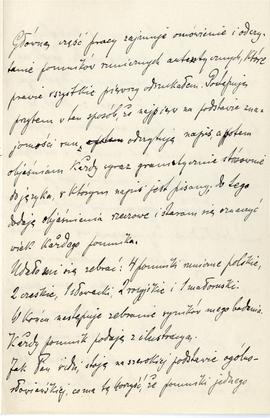 Główną część pracy zajmuje omówienie i odczy-
tanie pomników runicznych autentycznych, które
prawie wszystkie pierwszy odszukałem. Postępuję
przytem w ten sposób, że najpierw na podstawie zna-
jomości run, odczytuję napis a potem
objaśniam każdy wyraz gramatycznie stosownie
do języka, w którym napis jest pisany, do tego
dodaję objaśnienia rzeczowe i staram się oznaczyć
wiek każdego pomnika.
Udało mi się zebrać: 4 pomniki runiczne polskie,
2 czeskie, 1 słowacki, 2 rosyjskie i 1 małoruski.
W końcu następuje zebranie wyników mego badania.
Każdy pomnik podaję z ilustracyą.
Jak Pan widzi, stoję na szerokiej podstawie ogólno-
słowiańskiej, co ma tę korzyść, że pomniki jednego